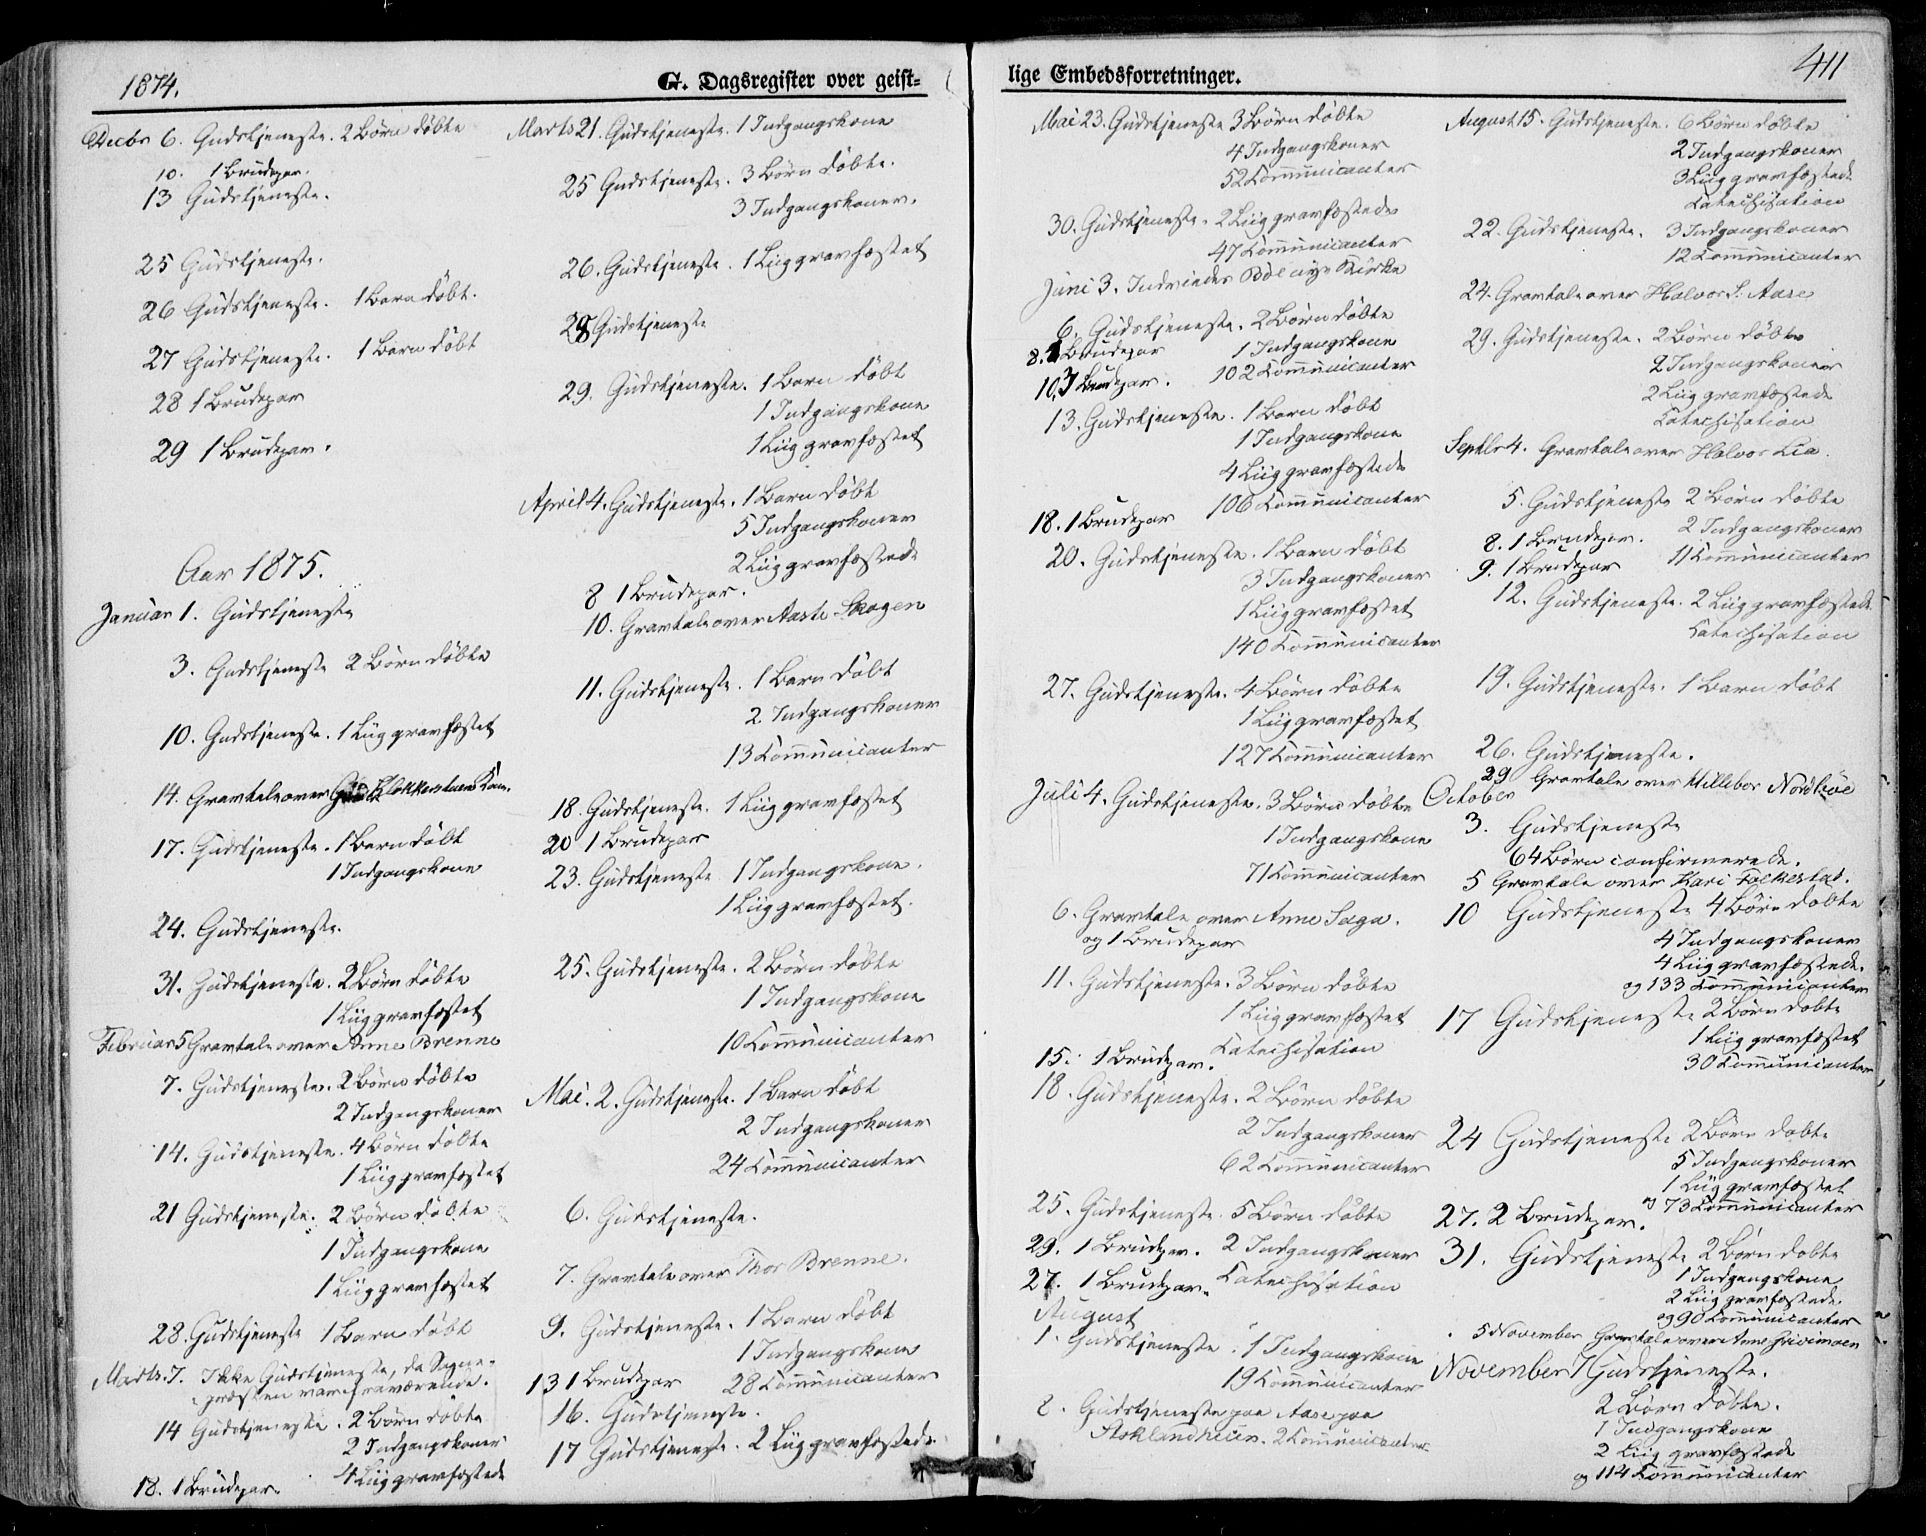 1874.
G. Dagsregister over geist-
Decbr 6. Gudstjeneste. 2 Børn døbte
10. 1 Brudepar.
13 Gudstjeneste.
25 Gudstjeneste.
26 Gudstjeneste. 1 Barn døbt.
27 Gudstjeneste. 1 Barn døbt
28 1 Brudepar
29 1 Brudepar.
Aar 1875.
Januar 1. Gudstjeneste
3. Gudstjeneste 2 Børn døbte
10. Gudstjeneste. 1 Liig gravfæstet
14. Gravtale over
17. Gudstjeneste. 1 Barn døbt
1 Indgangskone
24. Gudstjeneste.
31. Gudstjeneste. 2 Børn døbte
1 Liig gravfæstet
Februar 5 Gravtale over Anne Brenne
7. Gudstjeneste. 2 Børn døbte
2 Indgangskoner
14. Gudstjeneste. 4 Børn døbte
1 Liig gravfæstet
21 Gudstjeneste. 2 Børn døbte
1 Indgangskone
1 Liig gravfæstet
28. Gudstjeneste 1 Barn døbt
Marts. 7. Ikke Gudstjeneste, da Sogne-
præsten var fraværende.
14 Gudstjeneste. 2 Børn døbte
2 Indgangskoner
4 Liig gravfæstede
18. 1 Brudepar.
Marts 21. Gudstjeneste. 1 Indgangskone
25 Gudstjeneste. 3 Børn døbte.
3 Indgangskoner.
26. Gudstjeneste. 1 Liig gravfæstet
28 Gudstjeneste
29. Gudstjeneste. 1 Barn døbt
1 Indgangskone
1 Liig gravfæstet
April 4. Gudstjeneste. 1 Barn døbt
5 Indgangskoner
2 Liig gravfæstede
8 1 Brudepar.
10. Gravtale over Aaste Skogen
11. Gudstjeneste. 1 Barn døbt
2. Indgangskoner
13 Communicanter
18. Gudstjeneste. 1 Liig gravfæstet
20 1 Brudepar
23. Gudstjeneste 1 Indgangskone.
1 Liig gravfæstet.
25. Gudstjeneste. 2 Børn døbte
1 Indgangskone
10 Communicanter
Mai. 2. Gudstjeneste. 1 Barn døbt
2 Indgangskoner
24 Communicanter
6. Gudstjeneste.
7. Gravtale over Thor Brenne.
9. Gudstjeneste. 1 Barn døbt
1 Indgangskone
28 Communicanter
13 1 Brudepar
16. Gudstjeneste.
17 Gudstjeneste. 2 Liig gravfæstede.
lige Embedsforretninger.
411
Mai 23. Gudstjeneste 3 Børn døbte
4 Indgangskoner
52 Communicanter
30. Gudstjeneste. 2 Liig gravfæstede
47 Communicanter
Juni 3. Indviedes Bøe nye Kirke
6. Gudstjeneste. 2 Børn døbte
8. 1 Brudepar 1 Indgangskone
10. 3 Brudepar. 102 Communicanter
13. Gudstjeneste. 1 Barn døbt
1 Indgangskone
4 Liig gravfæstede
106 Communicanter
18. 1 Brudepar
20. Gudstjeneste. 1 Barn døbt
3 Indgangskoner
1 Liig gravfæstet
140 Communicanter
27. Gudstjeneste. 4 Børn døbte
1 Liig gravfæstet
127 Communicanter
Juli 4. Gudstjeneste. 3 Børn døbte
1 Indgangskone
71 Communicanter
6. Gravtale over Anne Saga.
og 1 Brudepar
11. Gudstjeneste. 3 Børn døbte
1 Liig gravfæstet
Catechisation
15. 1 Brudepar.
18. Gudstjeneste. 2 Børn døbte
2 Indgangskoner
62 Communicanter
25. Gudstjeneste. 5 Børn døbte
29. 1 Brudepar. 2 Indgangskoner
27. 1 Brudepar. Catechisation
August
1. Gudstjeneste. 1 Indgangskone
19 Communicanter
8. Gudstjeneste paa Aase paa
2 Communicanter
August 15. Gudstjeneste. 6 Børn døbte
2 Indgangskoner
3 Liig gravfæstede
Catechisation
22. Gudstjeneste. 3 Indgangskoner
12 Communicanter
24. Gravtale over Halvor S. Aase
29. Gudstjeneste. 2 Børn døbte
2 Indgangskoner
2 Liig gravfæstede
Catechisation
Septbr 4. Gravtale over Halvor Lia.
5. Gudstjeneste 2 Børn døbte
2 Indgangskoner
8. 1 Brudepar. 11 Communicanter
9. 1 Brudepar
12. Gudstjeneste. 2 Liig gravfæstede
Catechisation
19. Gudstjeneste. 1 Barn døbt
26. Gudstjeneste.
29 Gravtale over
October
3. Gudstjeneste
64 Børn confirmerede.
5 Gravtale over Kari Folkestad.
10 Gudstjeneste 4 Børn døbte
4 Indgangskoner
4 Liig gravfæstede.
og 133 Communicanter
17 Gudstjeneste 2 Børn døbte
1 Liig gravfæstet
30 Communicanter
24 Gudstjeneste 2 Børn døbte
5 Indgangskoner
1 Liig gravfæstet
og 73 Communicanter
27. 2 Brudepar.
31. Gudstjeneste 2 Børn døbte
1 Indgangskone
2 Liig gravfæstede.
og 90 Communicanter
5 November Gravtale over Anne Grivimoen
November 7 Gudstjeneste.
2 Børn døbte.
1 Indgangskone
2 Liig gravfæstede
og 114 Communicanter